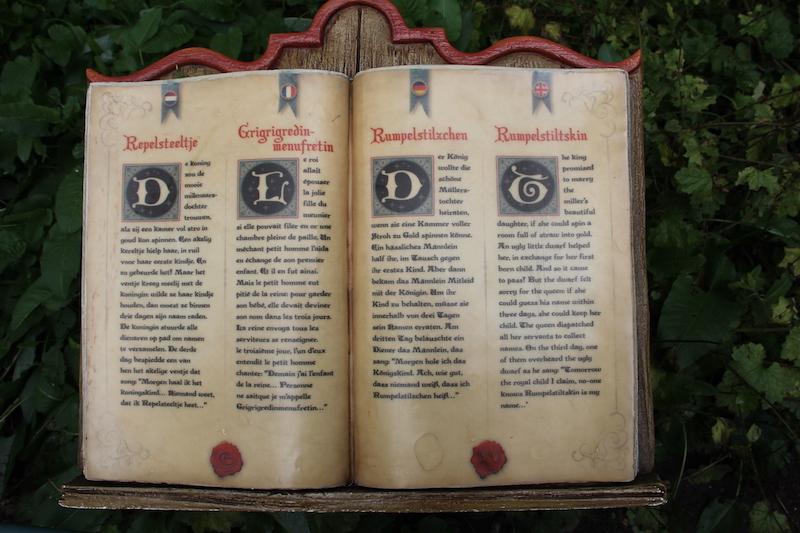 Repelsteeltje
De koning
zou de
mooie
molenaars-
dochter
trouwen,
als zij een kamer vol stro in
goud kon spinnen. Een akelig
kereltje hielp haar, in ruil
voor haar eerste kindje. En
zo gebeurde het! Maar het
ventje kreeg meelij met de
koningin: wilde ze haar kindje
houden, dan moest ze binnen
drie dagen zijn naam raden.
De koningin stuurde alle
dienaren op pad om namen
te verzamelen. De derde
dag bespiedde een van
hen het akelige ventje dat
zong: "Morgen haal ik het
koningskind... Niemand weet,
dat ik Repelsteeltje heet..."
Grigrigredin-
menufretin
Le roi
allait
épouser
la jolie
fille du
meunier
si elle pouvait filer en or une
chambre pleine de paille. Un
méchant petit homme l'aida
en échange de son premier
enfant. Et il en fut ainsi.
Mais le petit homme eut
pitié de la reine: pour garder
son bébé, elle devait deviner
son nom dans les trois jours.
La reine envoya tous les
serviteurs se renseigner.
le troisième jour, l'un d'eux
entendit le petit homme
chanter: "Demain j'ai l'enfant
de la reine... Personne
ne saitque je m'appelle
Grigrigredinmenufretin..."
Rumpelstilzchen
Der König
wollte die
schöne
Müllers-
tochter
heiraten,
wenn sie eine Kammer voller
Stroh zu Gold spinnen könne.
Ein hässliches Männlein
half ihr, im Tausch gegen
ihr erstes Kind. Aber dann
bekam das Männlein Mitleid
mit der Königin. Um ihr
Kind zu behalten, müsse sie
innerhalb von drei Tagen
sein Namen erraten. Am
dritten Tag belauschte ein
Diener das Männlein, das
sang: "Morgen hole ich das
Königskind. Ach, wie gut,
dass niemand weiß, dass ich
Rumpelstilzchen heiß..."
Rumpelstiltskin
The king
promised
to marry
the
miller's
beautiful
daughter, if she could spin a
room full of straw into gold.
An ugly little dwarf helped
her, in exchange for her first
born child. And so it came
to pass! But the dwarf felt
sorry for the queen: if she
could guess his name within
three days, she could keep her
child. The queen dispatched
all her servants to collect
names. On the third day, one
of them overheard the ugly
dwarf as he sang: "Tomorrow
the royal child I claim, no-one
knows Rumpelstiltskin is my
name..."